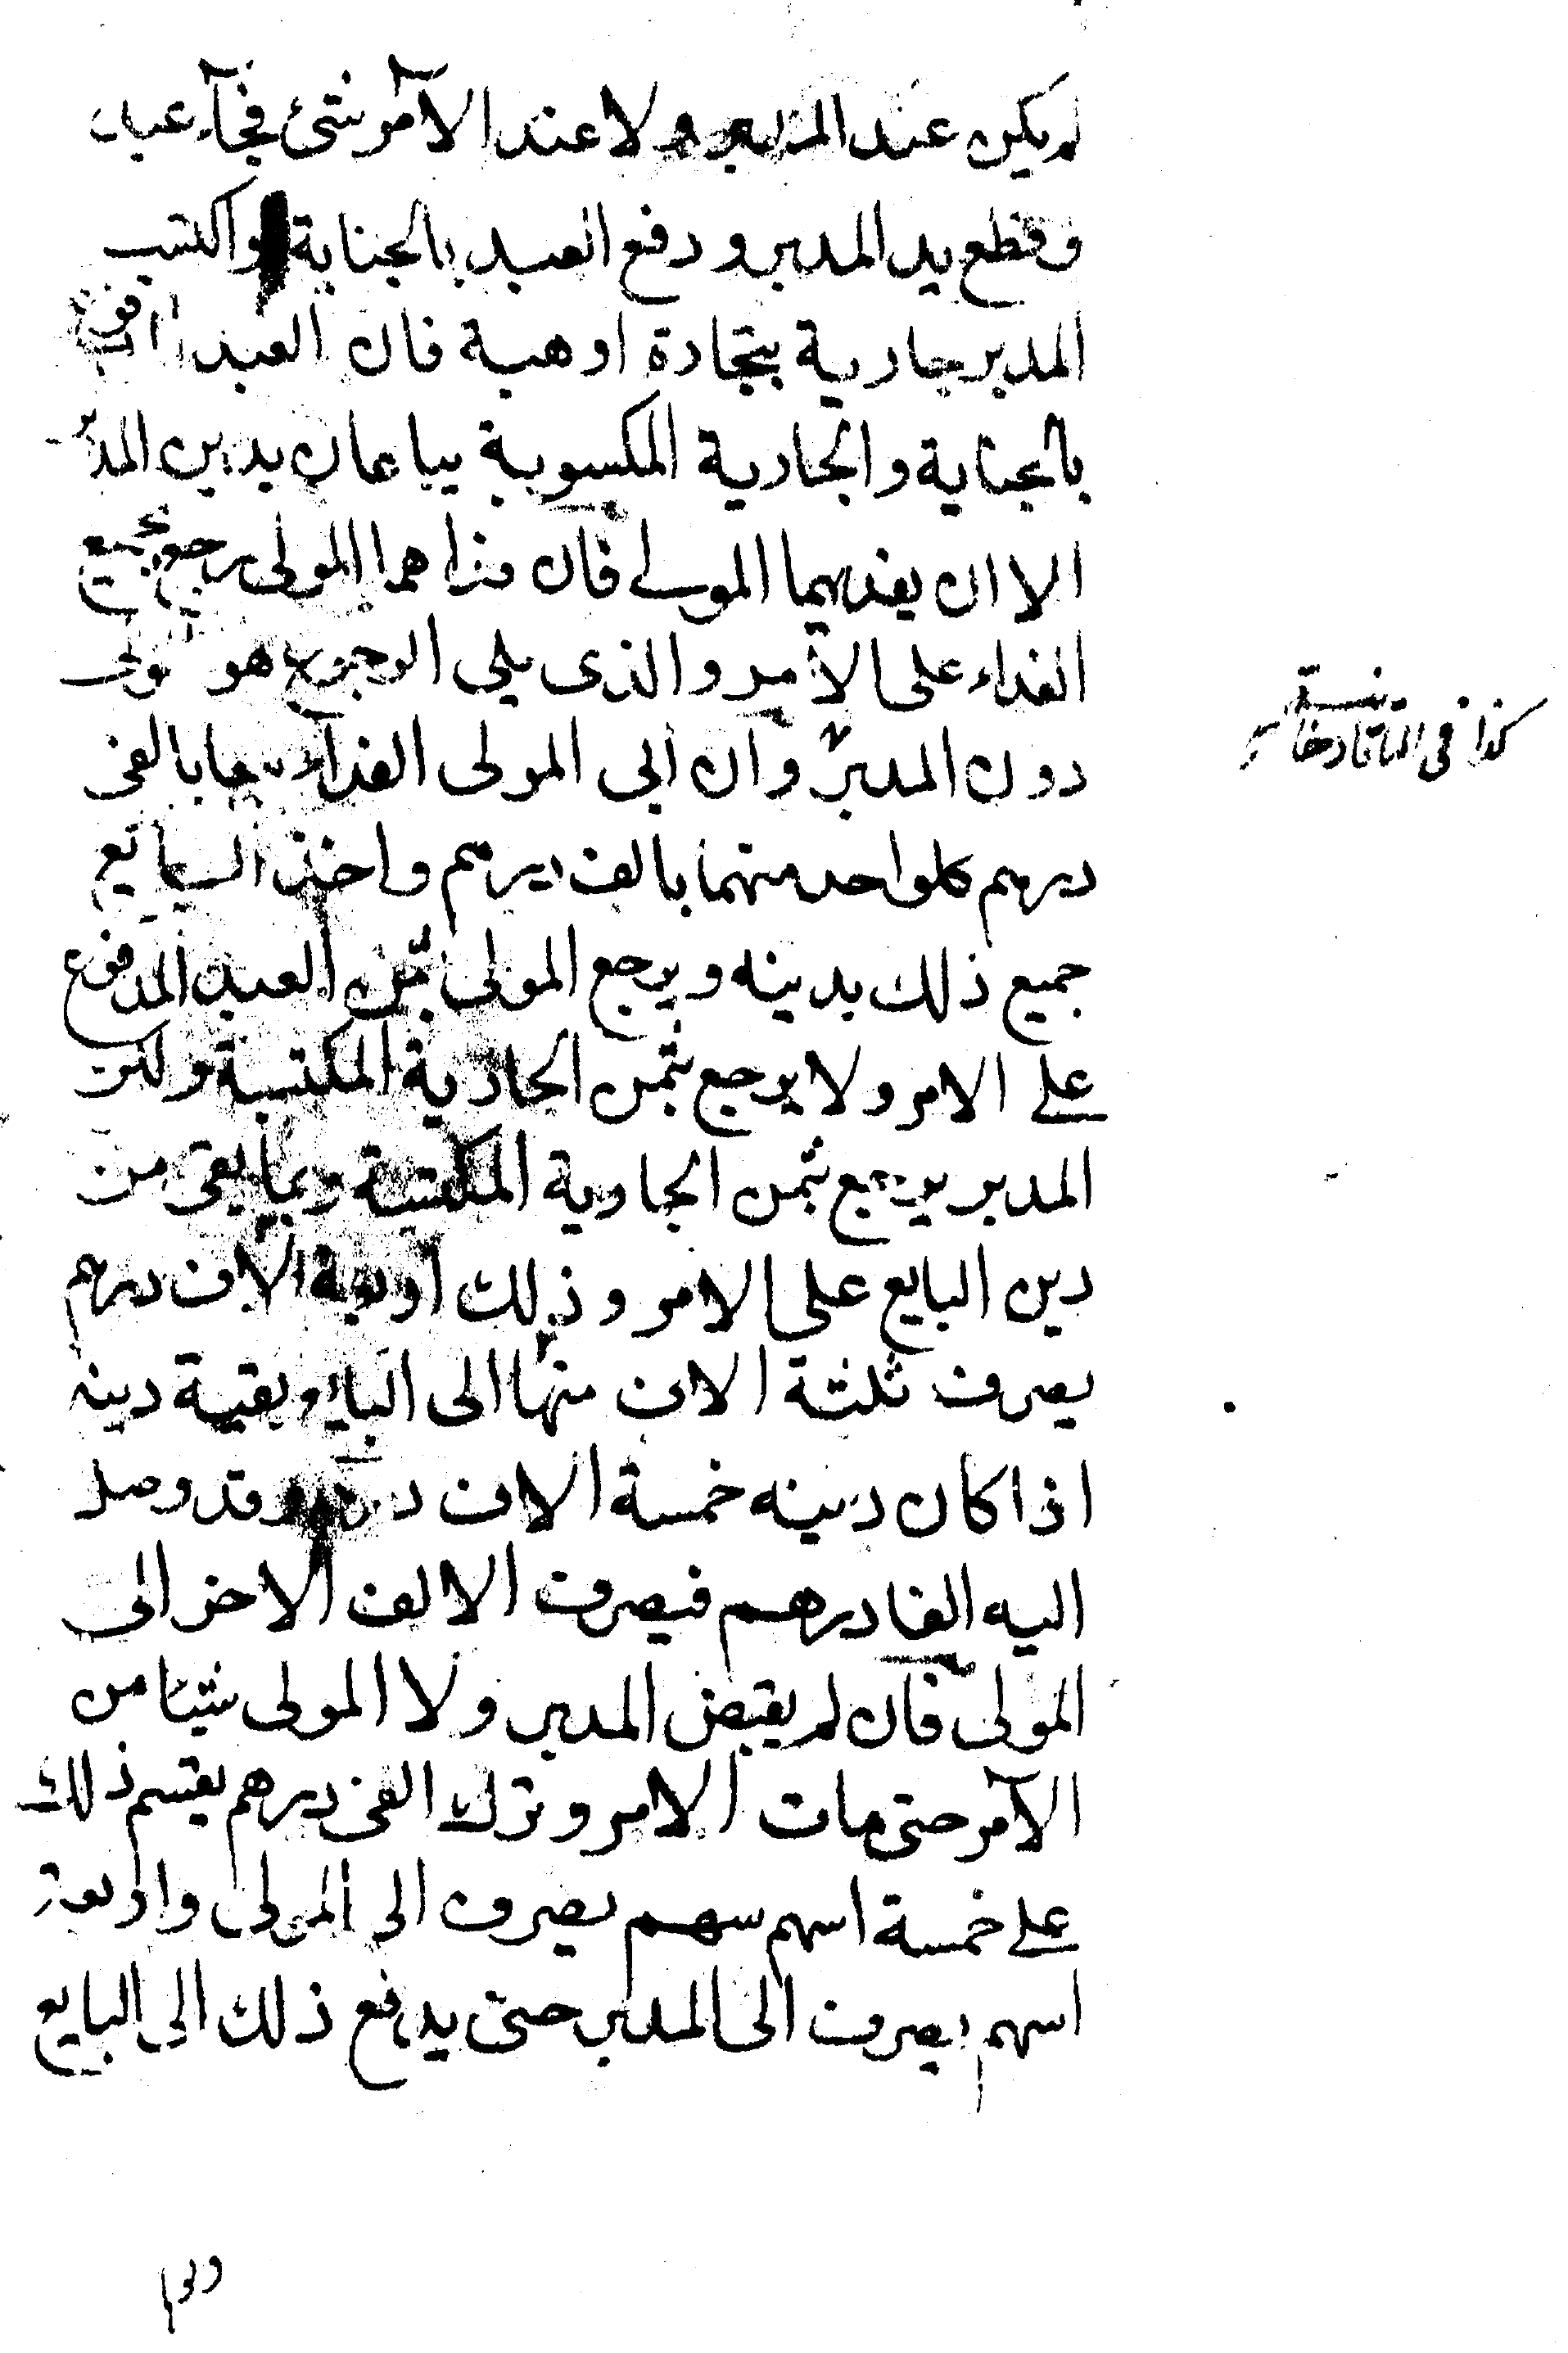 لم يكن عند المدبر ولا عند الآمر شئ فجآء عبد
وقطع يد المدبر ودفع العبد بالجناية واكتسب
المدبر جارية بتجارة او هبة فان العبد المدفوع
بالجناية والجارية المكسوبة يباعان بدين المدبر
الا ان يفديهما المولى فان فداهما المولى رجع بجميع
الفداء على الآمر والذى يلى الرجوع هو المولى
دون المدبر وان ابى المولى الفداء بيعا بالفى
درهم كلواحد منهما بالف درهم واخذ البايع
جميع ذلك بدينه ويرجع المولى بثمن العبد المدفوع
على الامر ولا يرجع بثمن الجارية المكتسبة ولكن
المدبر يرجع بثمن الجارية المكتسبة وبما بقى من
دين البايع على الامر وذلك اربعة الاف درهم
يصرف ثلثة الاف منها الى البايع بقية دينه
اذا كان دينه خمسة الاف درهم وقد وصل
اليه الفا درهم فيصرف الالف الاخر الى
المولى فان لم يقبض المدبر ولا المولى شيئا من
الآمر حتى مات الامر وترك الفى درهم يقسم ذلك
على خمسة اسهم سهم يصرف الى المولى واربعة
اسهم يصرف الى المدبر حتى يدفع ذلك الى البايع
كذا فى نسخة التاتارخانية